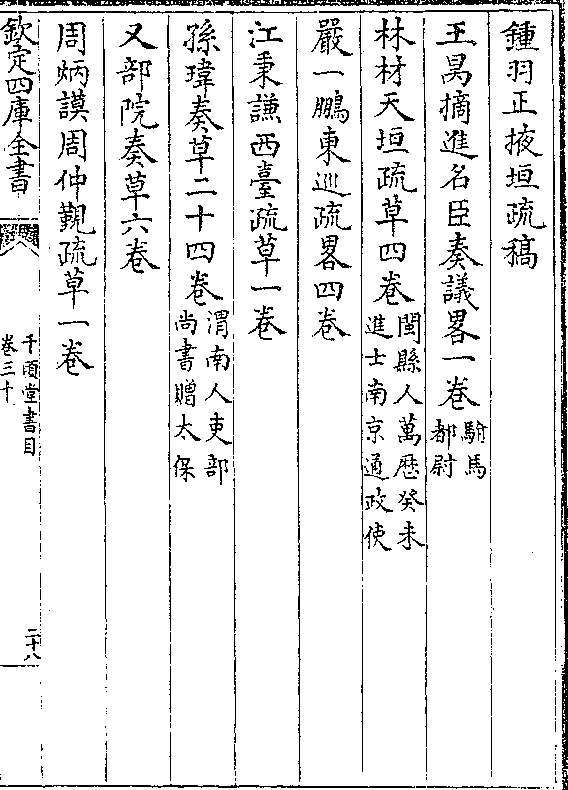 鍾羽正掖垣疏稿
王昺摘進名臣奏議畧一卷駙馬都尉
林材天垣疏草四卷閩縣人萬歴癸未進士南京通政使
嚴一鵬東巡疏畧四卷
江秉謙西臺疏草一卷
孫瑋奏草二十四卷渭南人吏部尚書贈太保
又部院奏草六卷
周炳謨周仲覲疏草一卷
欽定四庫全書
千頃堂書目
卷三十
二十八